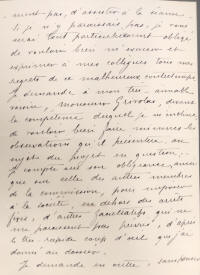 ment pas, d'assister à la séance.
Si je n'y paraissais pas, je vous
serai tout particulièrement obligé
de vouloir bien m'excuser et
exprimer à mes collègues tous mes
regrets de ce malheureux contretemps.
Je demande à mon très aimable
Monsieur Grivolas, devant
la compétence duquel je m'incline,
de vouloir bien faire siennes les
observations qu'il présentera au
sujet du projet en question.
Je compte sur son obligeance, ainsi
que sur celle des autres membres
de la commission, pour
à la société, en dehors des
frais, d'autres qui ne
me paraissent pas prévus, d'après
le très rapide coup d'œil que j'ai
donné au dossier.
Je demande en outre,